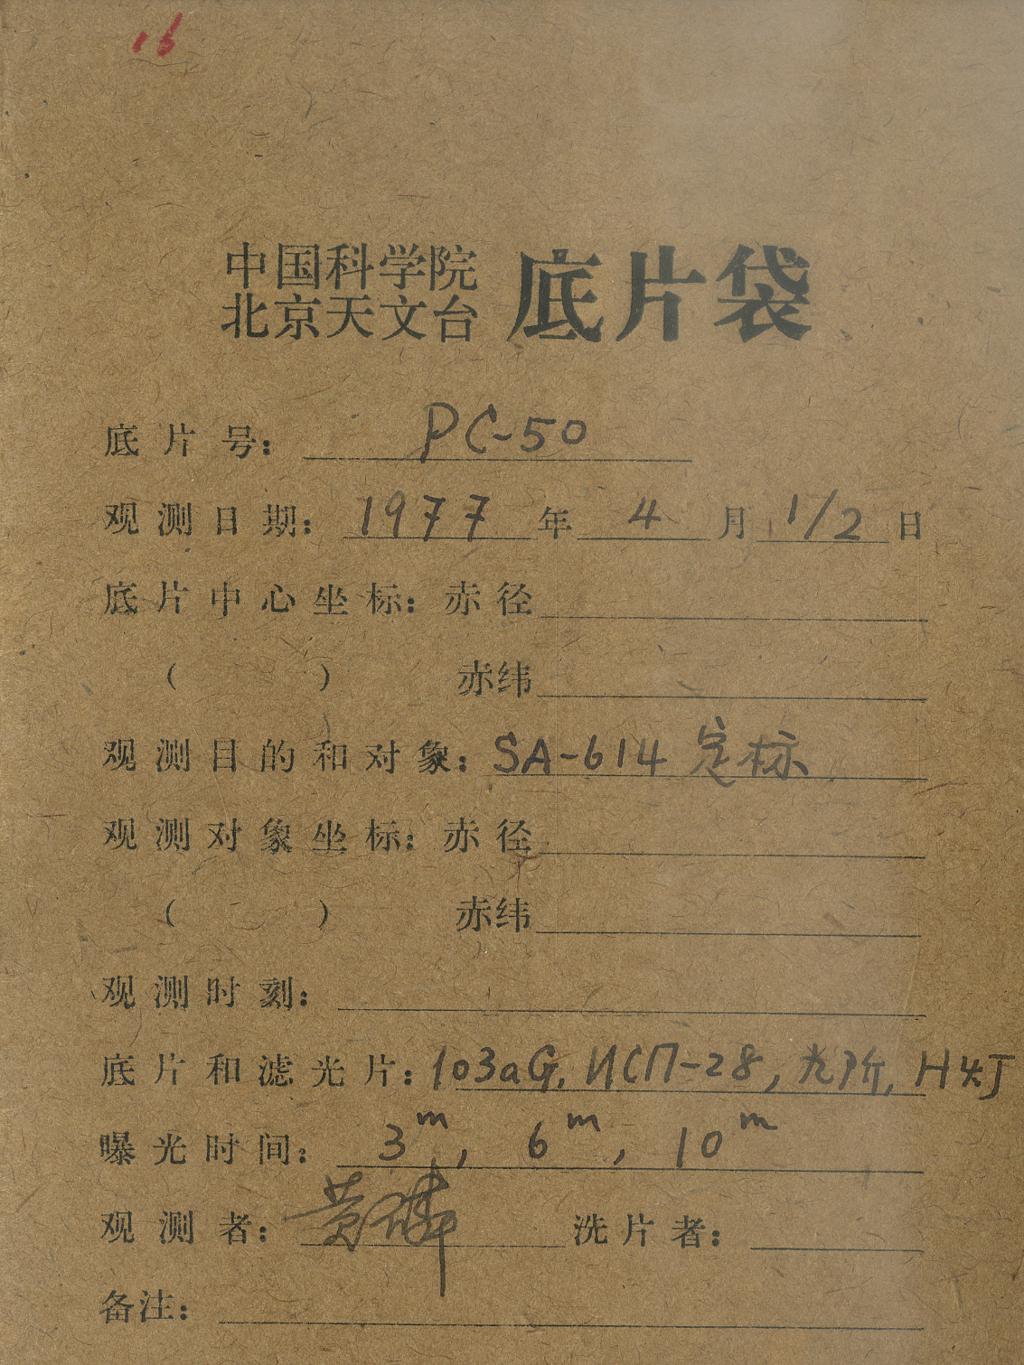 16
中国科学院
北京天文台 底片袋
底片号: PC-50
观测日期: 1977年 4月 1/2日
底片中心坐标: 赤径
( ) 赤纬
观测目的和对象: SA-614 定标
观测对象坐标: 赤径
( ) 赤纬
观测时刻:
底片和滤光片: 103aG, ИСП-28, 光阶, H灯
曝光时间: 3m, 6m, 10m
观测者: 黄磷 洗片者:
备注: